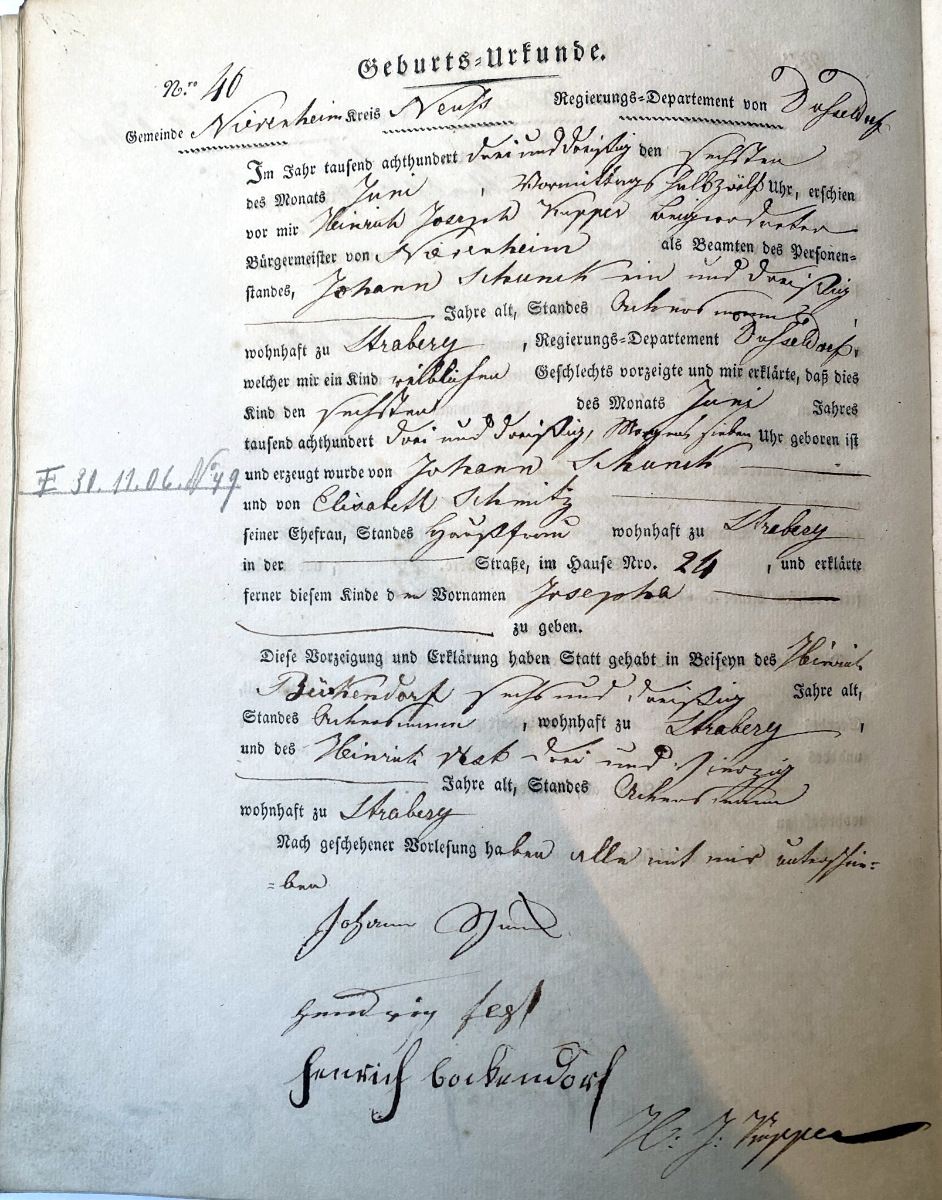 Geburts-Urkunde.
N.ro 40
Gemeinde Nievenheim Kreis Neuss Regierungs-Departement von Düsseldorf
Im Jahr tausend achthundert drei und dreißig den sechsten
des Monats Juni, Vormittags halbzwölf Uhr, erschien
vor mir Heinrich Joseph Küpper beigeordneter
Bürgermeister von Nievenheim als Beamten des Personen-
standes, Johann Schunck ein und dreißig
Jahre alt, Standes Ackersmann,
wohnhaft zu Straberg, Regierungs-Departement Düsseldorf,
welcher mir ein Kind weiblichen Geschlechts vorzeigte und mir erklärte, daß dies
Kind den sechsten des Monats Juni Jahres
tausend achthundert drei und dreißig, Morgens sieben Uhr geboren ist
und erzeugt wurde von Johann Schunck
31.11.06. No 49
und von Elisabeth Schmitz
seiner Ehefrau, Standes Haußfrau wohnhaft zu Straberg
in der Straße, im Hause Nro. 24, und erklärte
ferner diesem Kinde den Vornamen Josepha
zu geben.
Diese Vorzeigung und Erklärung haben Statt gehabt in Beiseyn des Heinrich
Böckendorf sechs und dreißig Jahre alt,
Standes Ackersmann, wohnhaft zu Straberg,
und des Heinrich drei und vierzig
Jahre alt, Standes Ackersmann
wohnhaft zu Straberg
Nach geschehener Vorlesung haben alle mit mir unterschrie=
=ben
Johann Schunck
henrich bockendorf
H. J. Küpper